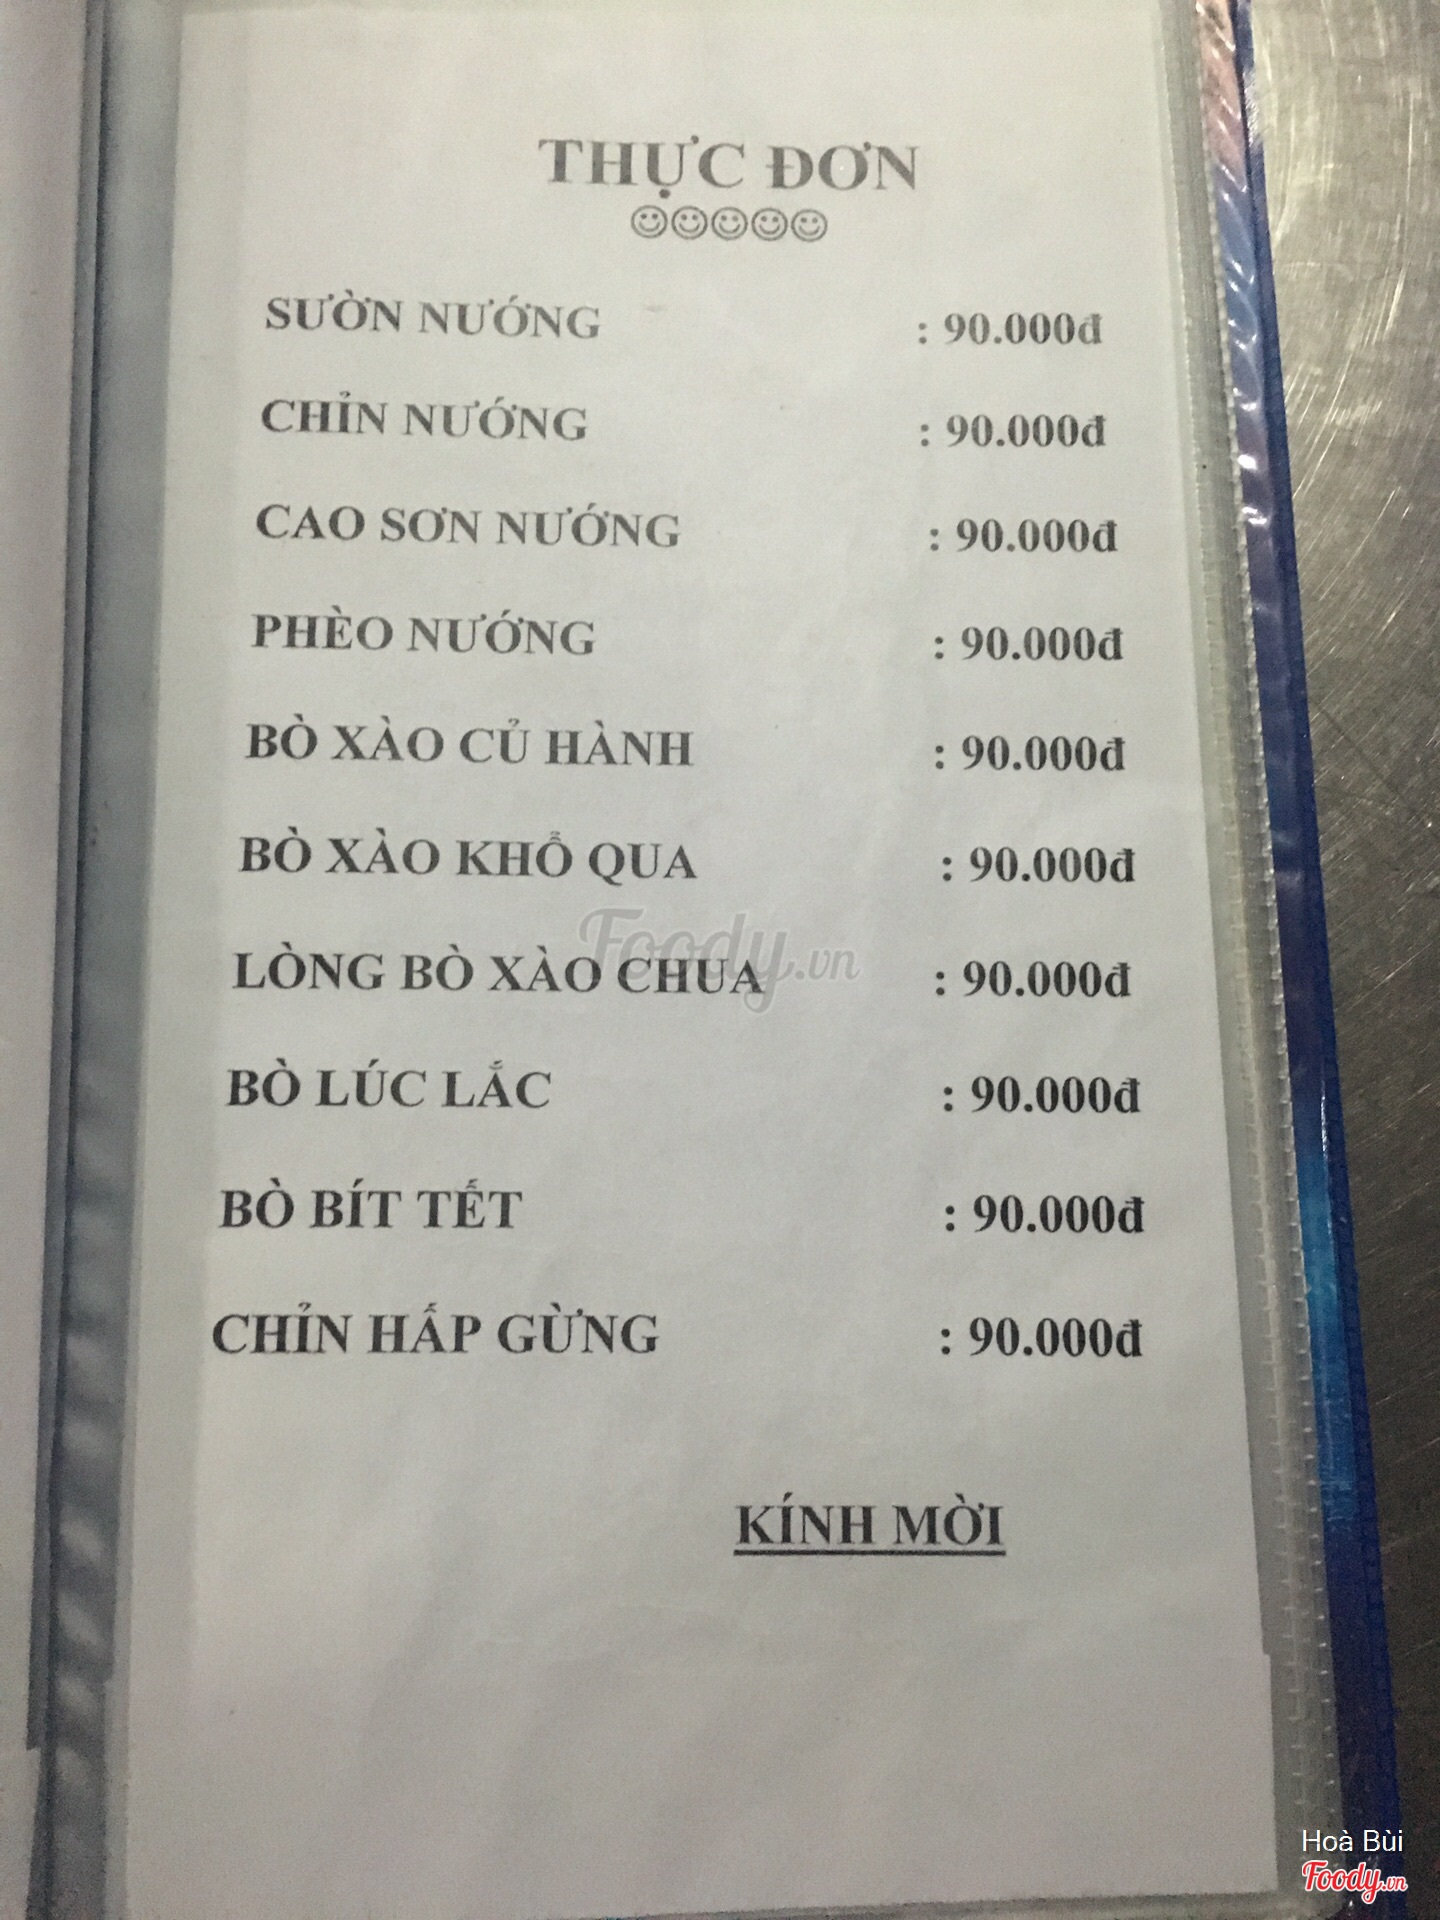 THỰC ĐƠN
☺☺☺☺☺
SƯỜN NƯỚNG : 90.000đ
CHỈN NƯỚNG : 90.000đ
CAO SƠN NƯỚNG : 90.000đ
PHÈO NƯỚNG : 90.000đ
BÒ XÀO CỦ HÀNH : 90.000đ
BÒ XÀO KHỔ QUA : 90.000đ
Foody.vn
LÒNG BÒ XÀO CHUA : 90.000đ
BÒ LÚC LẮC : 90.000đ
BÒ BÍT TẾT : 90.000đ
CHỈN HẤP GỪNG : 90.000đ
KÍNH MỜI
Hoà Bùi
Foody.vn